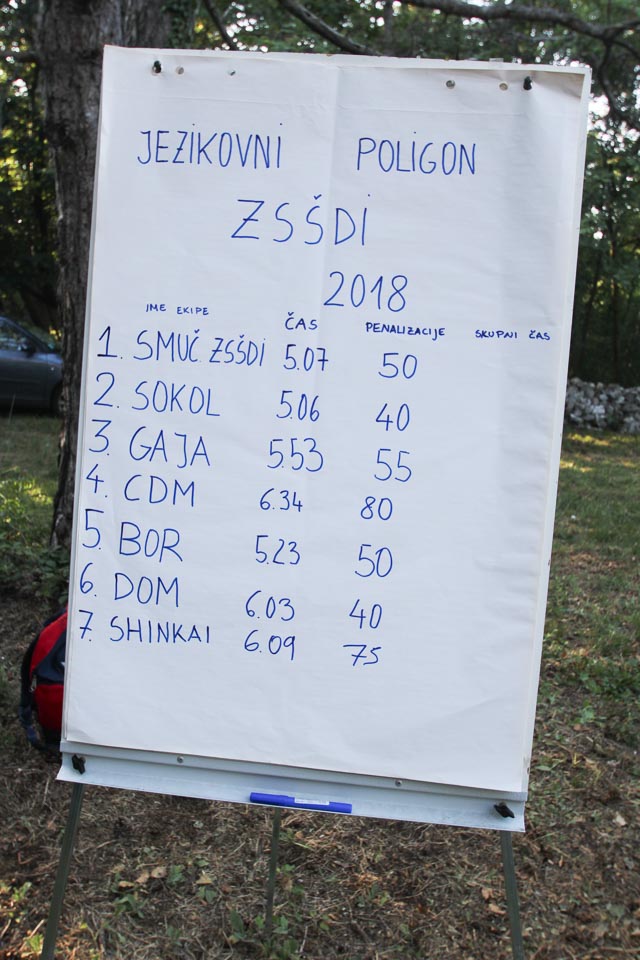 JEZIKOVNI POLIGON
ZSŠDI
2018
IME EKIPE ČAS PENALIZACIJE SKUPNI ČAS
1. SMUČ. ZSŠDI 5.07 50
2. SOKOL 5.06 40
3. GAJA 5.53 55
4. CDM 6.34 80
5. BOR 5.23 50
6. DOM 6.03 40
7. SHINKAI 6.09 75